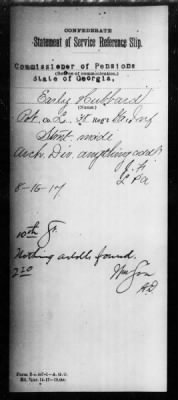 CONFEDERATE
Statement of Service Reference Slip.
Commissioner of Pensions
(Source of communication.)
State of Georgia,
Early Hubbard
(Name)
Pvt. Co. L. Regt Ga. Inf
Stmt made
Arch. Div. anything addl?
8-16-17
10th
Nothing addl found.
220